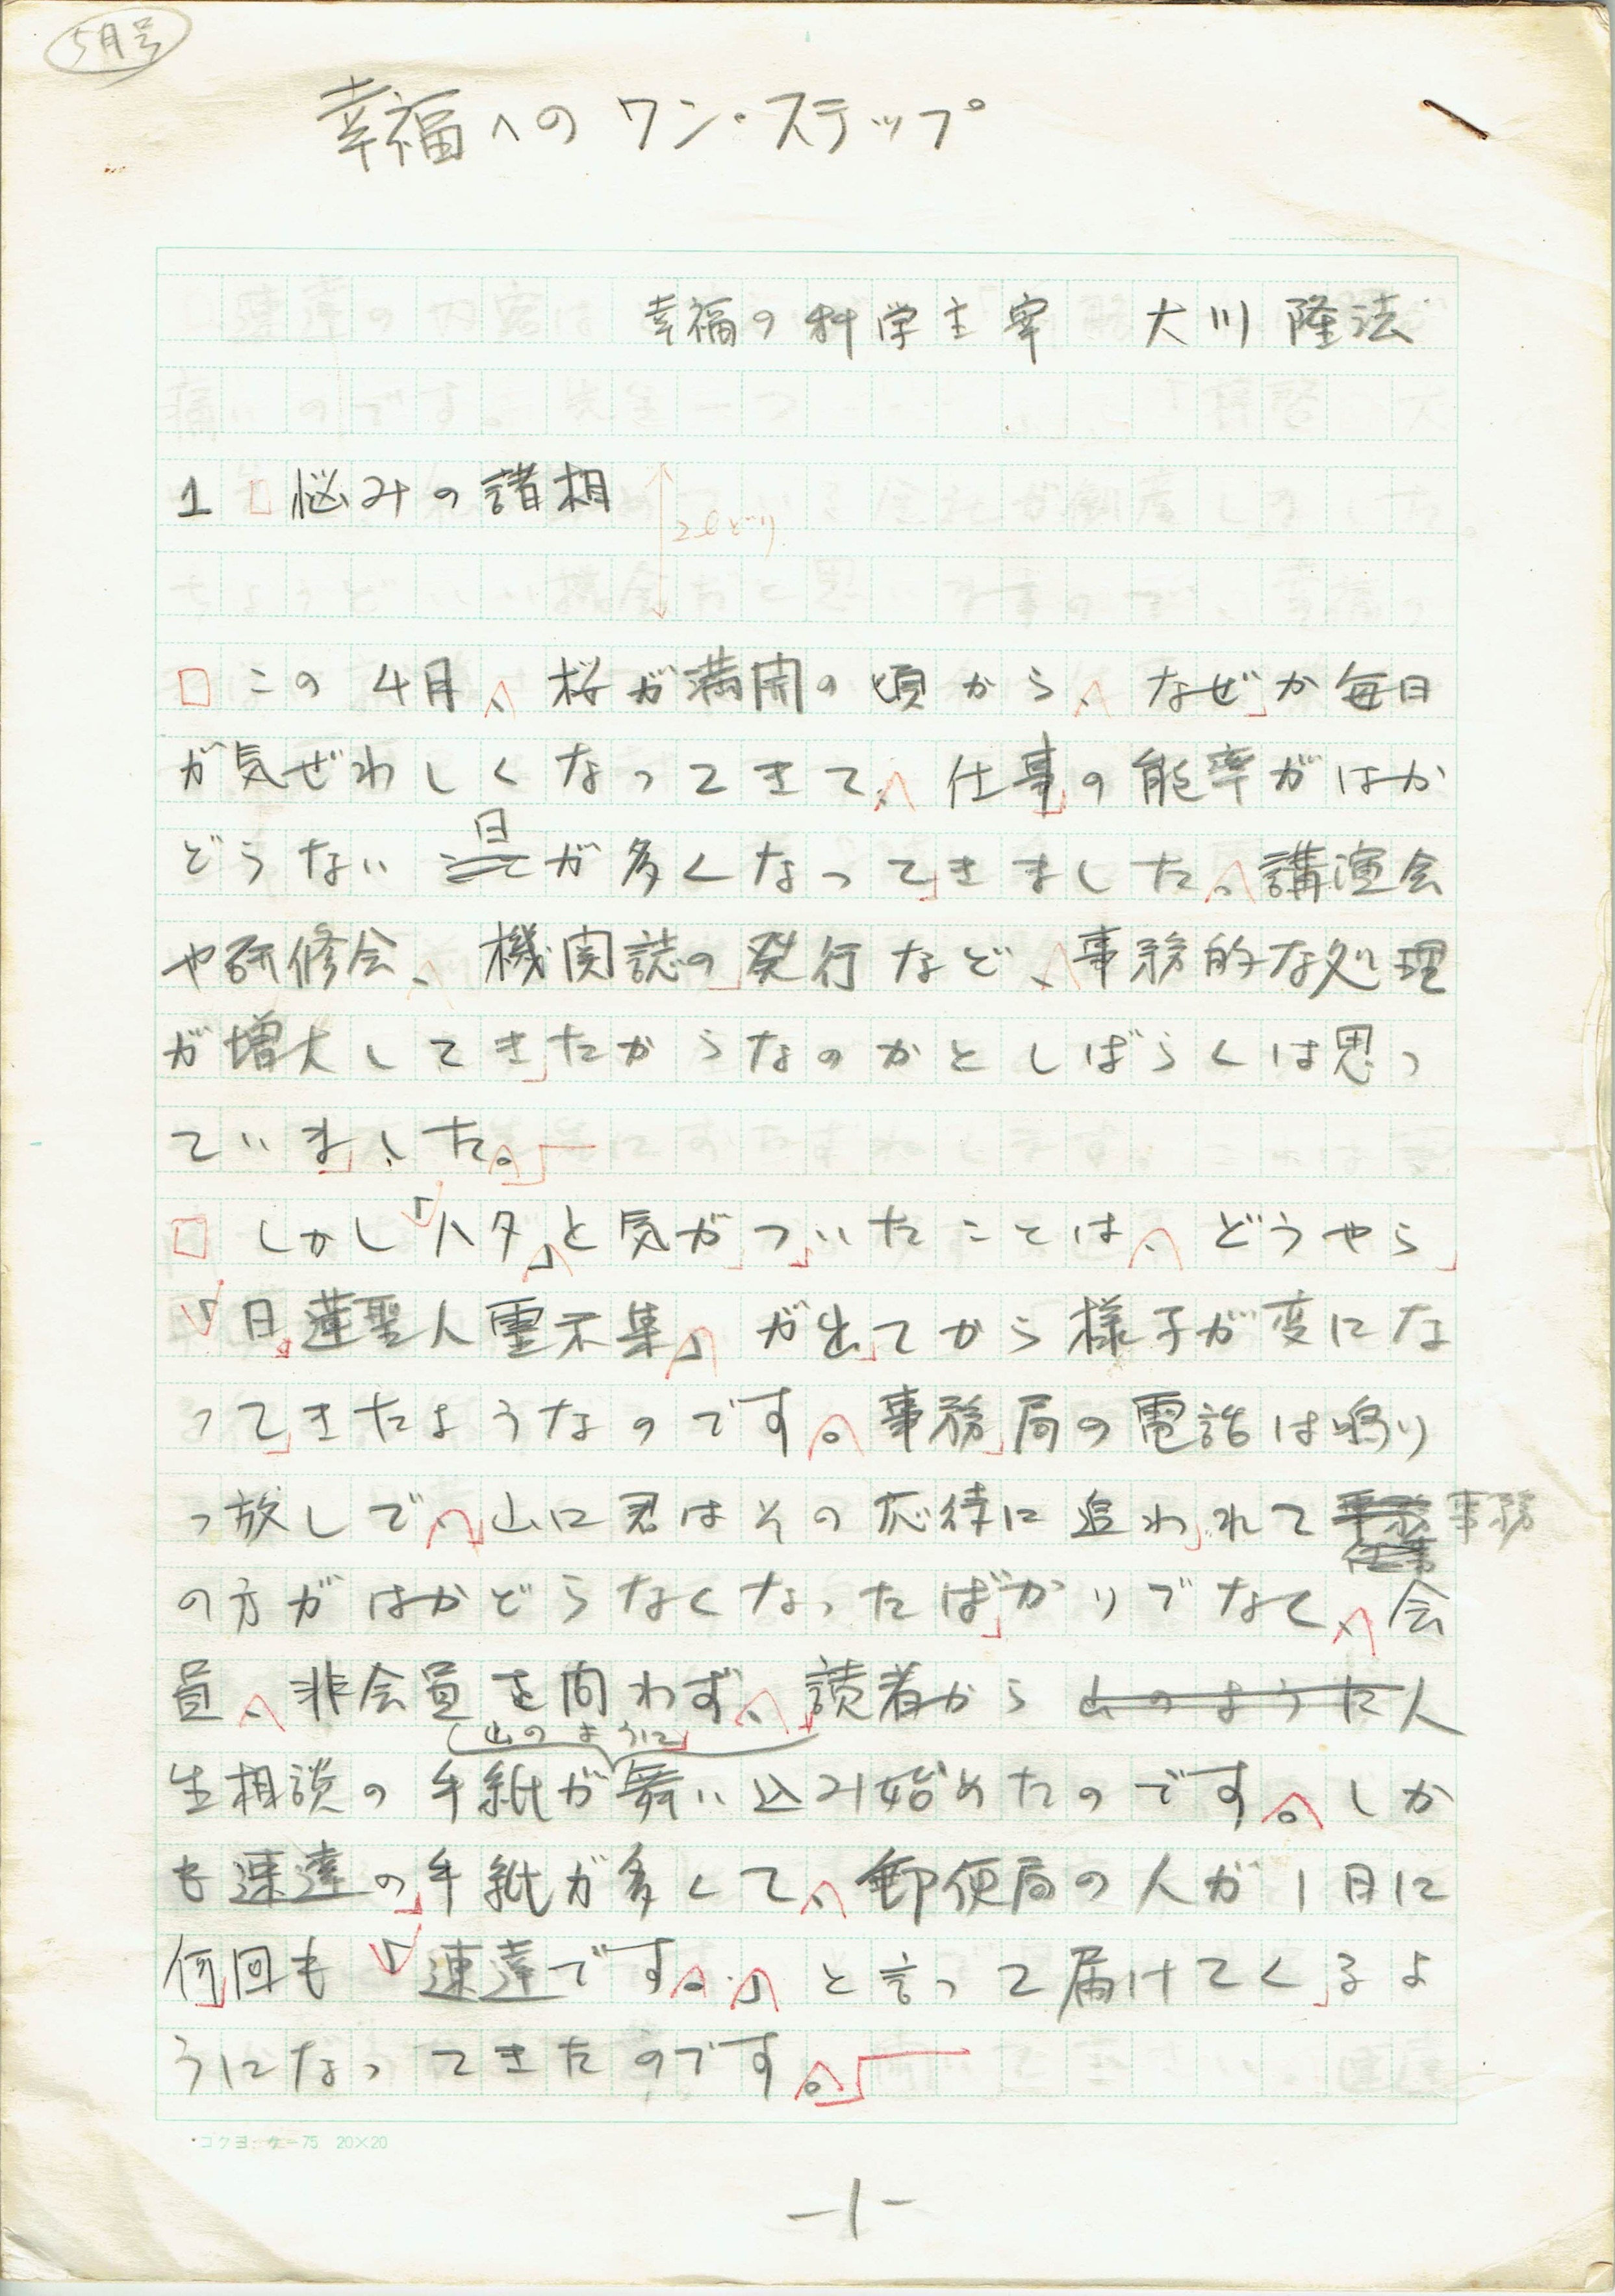 5月号
幸福へのワン・ステップ
幸福の科学主宰 大川隆法
1 悩みの諸相
2行どり
この4月、桜が満開の頃から、なぜか毎日
が気ぜわしくなってきて、仕事の能率がはか
どらない日が多くなってきました。講演会
や研修会、機関誌の発行など、事務的な処理
が増大してきたからなのかとしばらくは思っ
ていました。
しかし「ハタ」と気がついたことは、どうやら
「日蓮聖人霊示集」が出てから様子が変にな
ってきたようなのです。事務局の電話は鳴り
っ放しで、山口君はその応待に追われて事務
の方がはかどらなくなったばかりでなく、会
員、非会員を問わず、読者から山のような人
山のように
生相談の手紙が舞い込み始めたのです。しか
も速達の手紙が多くて、郵便局の人が1日に
何回も「速達です。」と言って届けてくるよ
うになってきたのです。
コクヨ ケー75 20×20
-1-